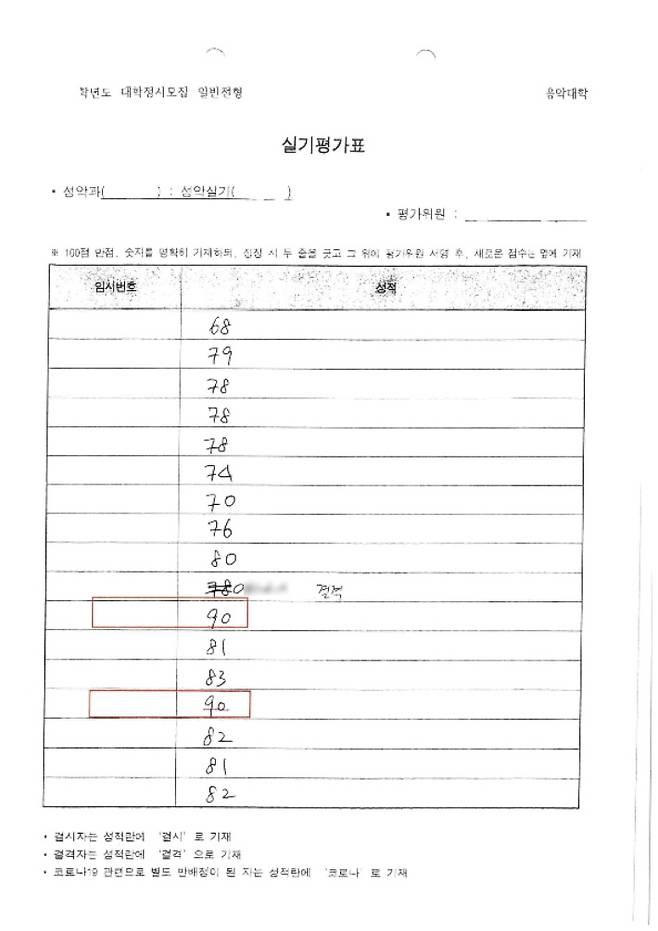 학년도 대학정시모집 일반전형 음악대학
실기평가표
• 성악과( ) : 성악실기( )
• 평가위원 :
※ 100점 만점, 숫자를 명확히 기재하되, 정정 시 두 줄을 긋고 그 위에 평가위원 서명 후, 새로운 점수는 옆에 기재
임시번호 성적
68
79
78
78
78
74
70
76
80
0
90
81
83
90
82
81
82
• 결시자는 성적란에 '결시' 로 기재
• 결격자는 성적란에 '결격' 으로 기재
• 코로나19 관련으로 별도 반배정이 된 자는 성적란에 '코로나' 로 기재